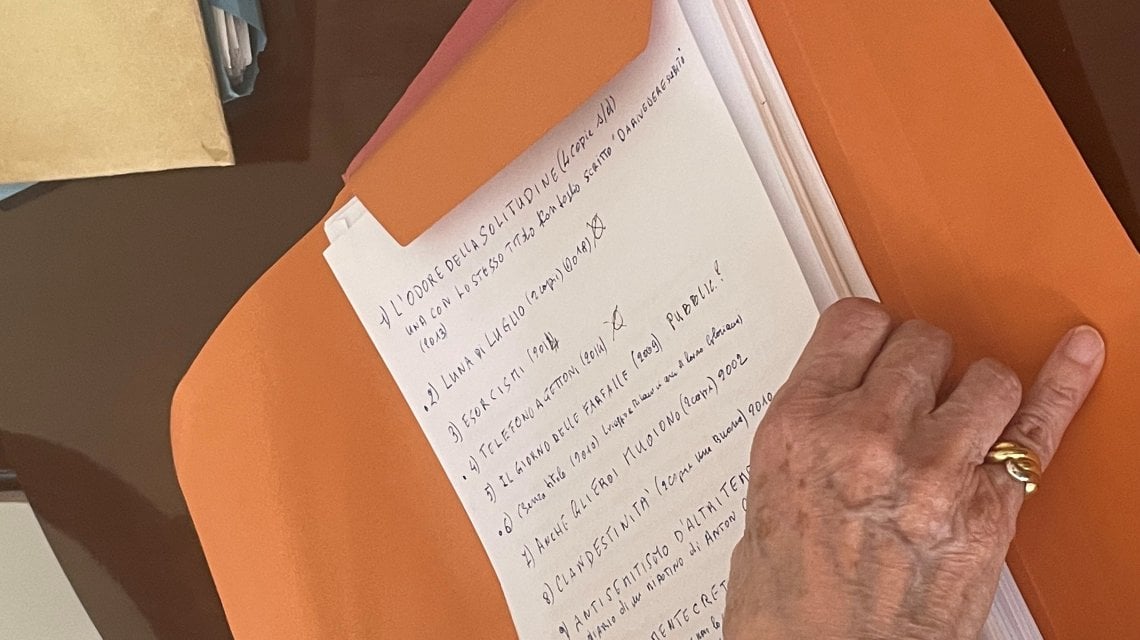 1) L'ODORE DELLA SOLITUDINE (4 copie s/d)
UNA CON LO STESSO TITOLO SCRITTO "DA RIVEDERE SUBITO"
(2013)
.2) LUNA DI LUGLIO (2 copie) (2018)
3) ESORCISMI (2014
.4) TELEFONO A GETTONI (2014)
5) IL GIORNO DELLE FARFALLE (2009) PUBBLIC?
.6) (Senza titolo (2010)
7) ANCHE GLI EROI MUOIONO (2 copie) 2002
8) CLANDESTINITA' (2 copie una Buona) 2010
9) ANTISEMITISMO D'ALTRI TEMP
diario di un nipotino di ANTON
MENTECRET